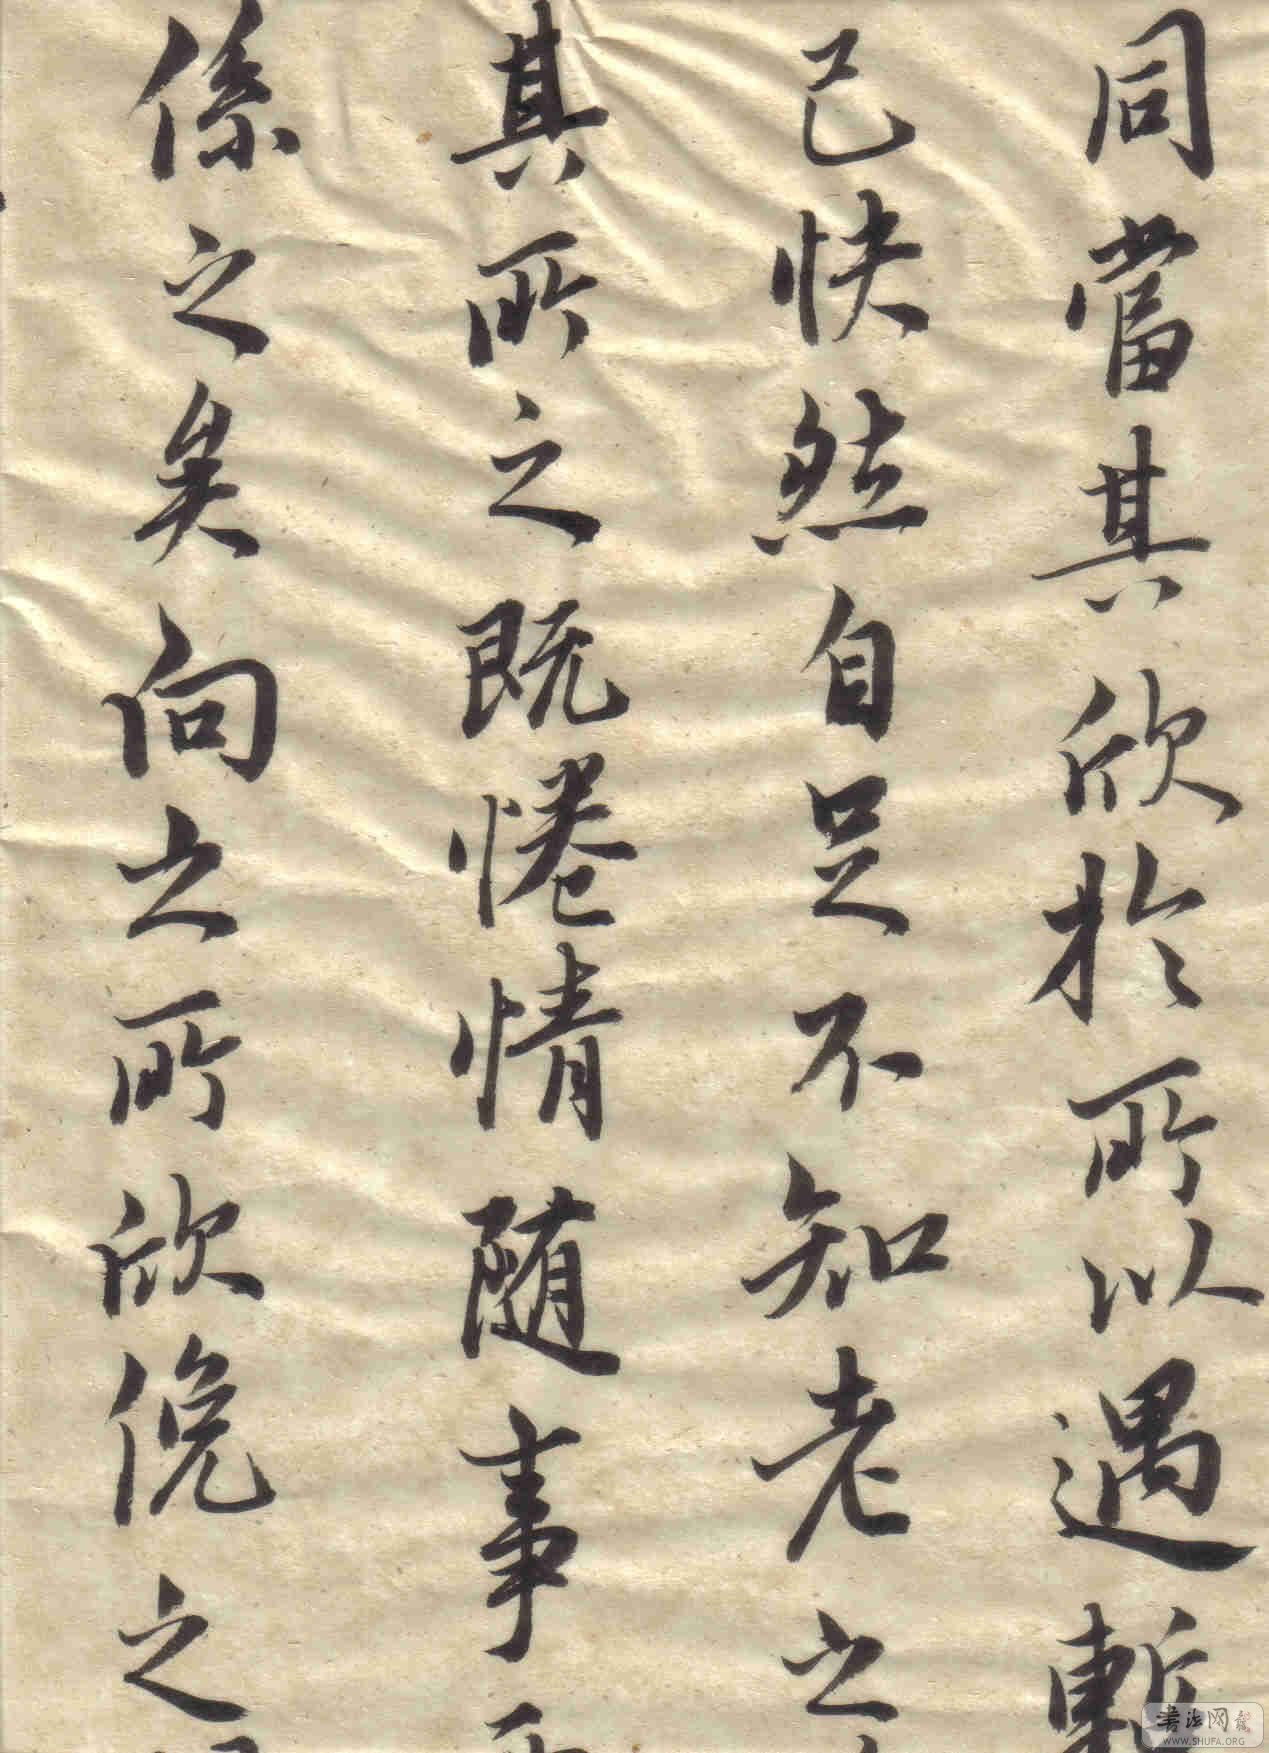 同當其欣於所以遇暫
己快然自足不知老之
其所之既惓情随事
係之矣向之所欣俛之
書法网
WWW.SHUFA.ORG